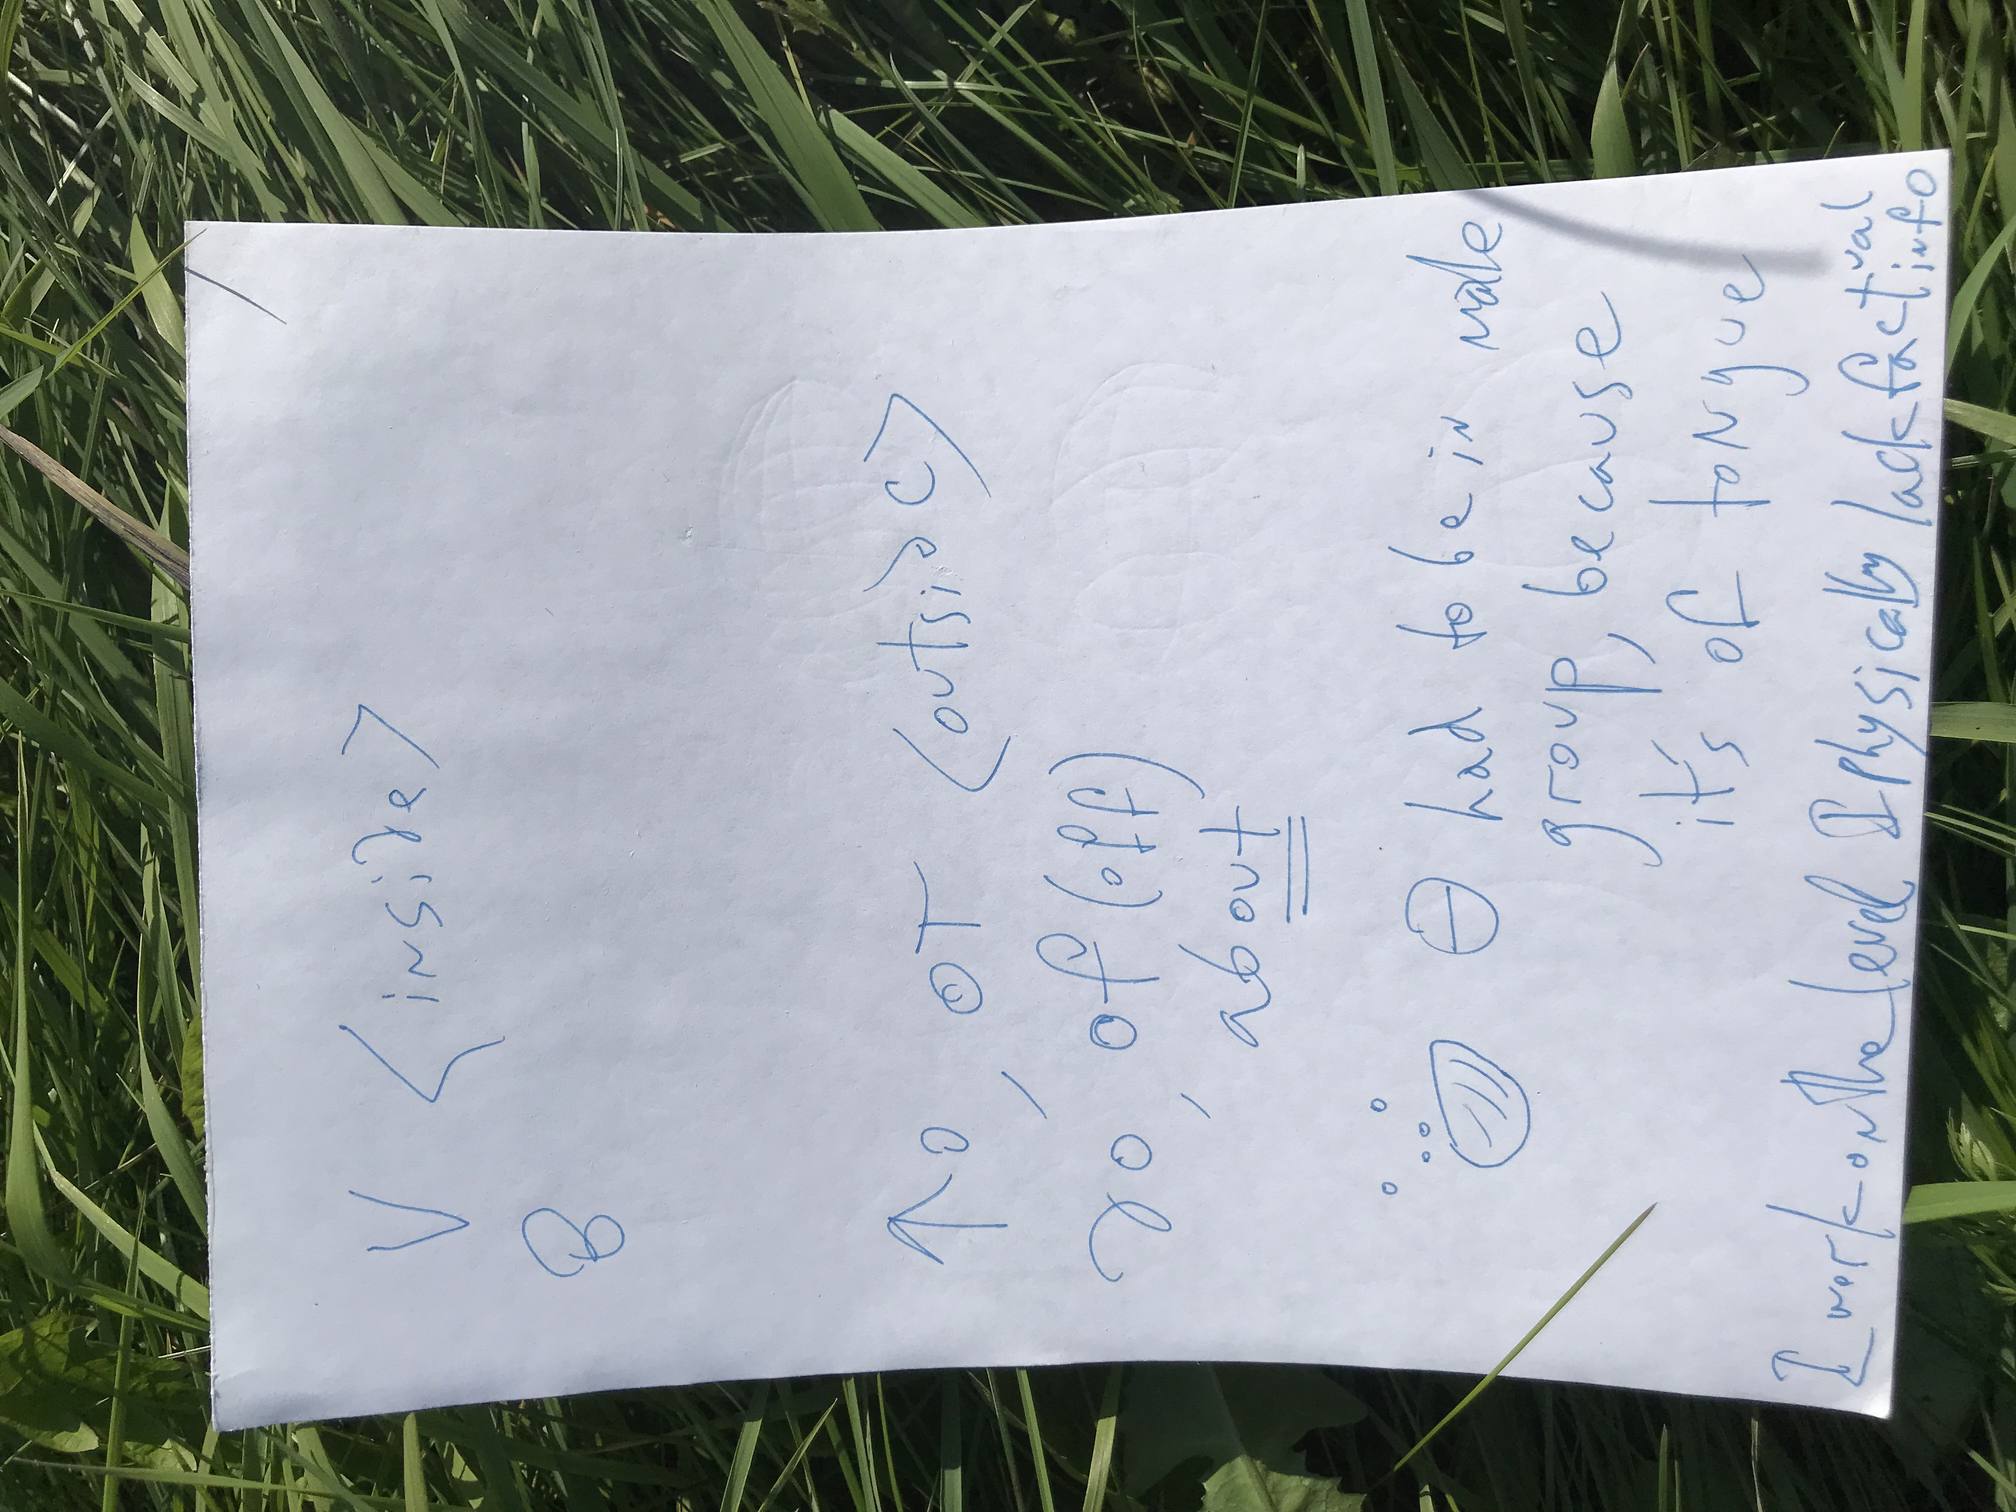 V <inside>
B
↑o, OT <outside>
go, of (off)
, about
⊖ had to be in male
group, because
it's of tongue
I work on the level I physically lack factual info